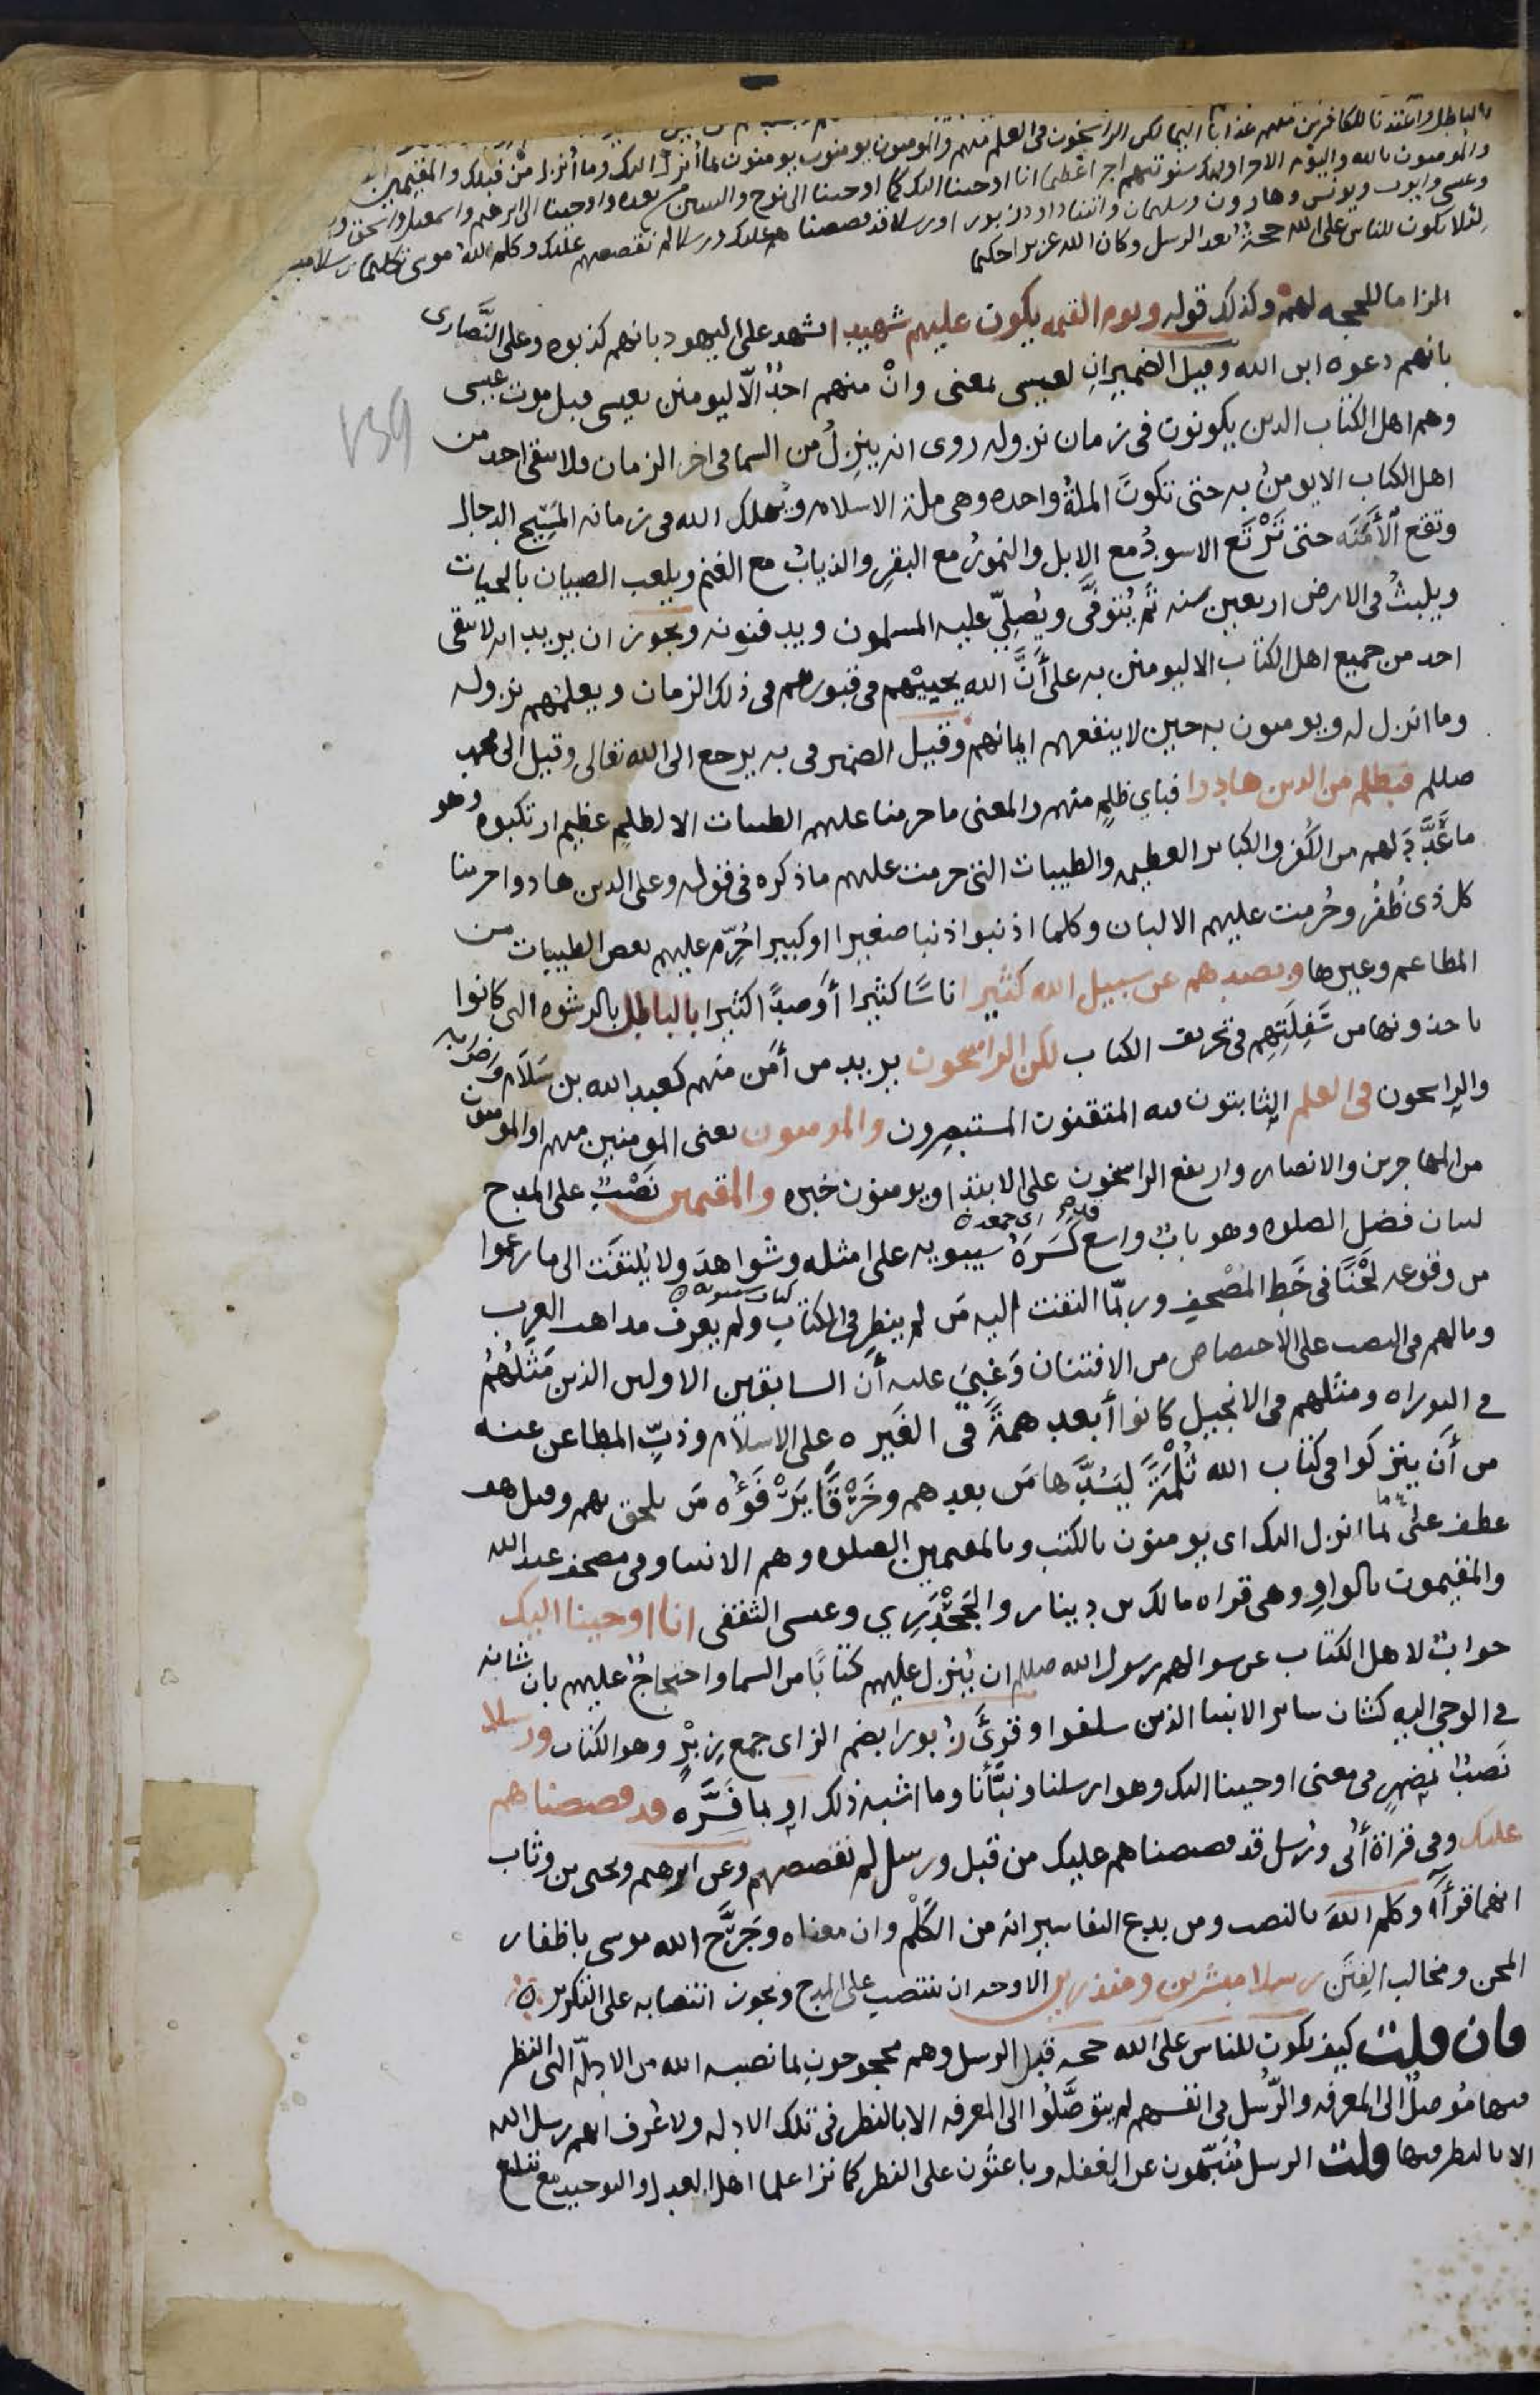 بالباطل واعتدنا للكافرين منهم عذابا اليما لكن الراسخون في العلم منهم والمومنون يومنون بما أنزل اليك وما أنزل من قبلك والمقيمين
والمومنون بالله واليوم الاخر اولئك سنوتيهم اجرا عظيما انا اوحينا اليك كما اوحينا الى نوح والنبيين من بعده واوحينا الى ابرهيم واسمعيل واسحق
وعيسى وايوب ويونس وهارون وسليمان واتينا داود زبورا ورسلا قد قصصناهم عليك ورسلا لم نقصصهم عليك وكلم الله موسى تكليما رسلا
لئلا يكون للناس على الله حجة بعد الرسل وكان الله عزيزا حكيما
الزاما للحجه لهم وكذلك قوله ويوم القيمه يكون عليهم شهيدا يشهد على اليهود بانهم كذبوه وعلى النَّصارى
بانهم دعوه ابن الله وقيل الضميران لعيسى بمعنى وانْ منهم احدٌ الّا ليومنن بعيسى قبل موت عيسى
وهم اهل الكتاب الذين يكونون في زمان نزوله روى انه ينزِلُ من السما في اخر الزمان ولا يبقى احد من
اهل الكتاب الا يومنُ به حتى تكونَ الملةُ واحده وهي ملة الاسلام ويُهلك الله في زمانه المسِّيح الدجال
وتقع الأَمَنَه حتى تَرْتَع الاسودُ مع الابل والنمورُ مع البقرِ والذيابُ مع الغنم ويلعب الصبيان بالحيات
ويلبثُ في الارض اربعين سنه ثم يُتوفَّى ويُصلِّي عليه المسلمون ويدفنونه ويجوز ان يريد انه لا يبقى
احد من جميع اهل الكتاب الا ليومنن به على أنَّ الله يحييْهم في قبورهم في ذلك الزمان ويعلمُهم نزوله
وما انزل له ويومنون به حين لا ينفعهم ايمانهم وقيل الضمير في به يرجع الى الله تعالى وقيل الى محمد
صللم فبظلم من الذين هادوا فباي ظلمٍ منهم والمعنى ما حرمنا عليهم الطيبات الا لظلمٍ عظيم ارتكبوه وهو
ما عُدَّدَ لهم من الكُفر والكباير العظيمه والطيبات التي حرمت عليهم ما ذكره في قوله وعلى الذين هادوا حرمنا
كل ذي ظُفُر وحُرمت عليهم الالبان وكلما اذنبوا ذنبا صغيرا او كبيرا حُرِّم عليهم بعض الطيبات من
المطاعم وغيرها وبصدهم عن سبيل الله كثيرا ناسًا كثيرا أو صدًّا كثيرا بالباطل بالرشوه التي كانوا
ياخذونها من سَفِلَتِهم في تحريف الكتاب لكن الراسخون يريد من أمن منهم كعبد الله بن سَلَام وَضَرْبه
والراسخون في العلم الثابتون فيه المتقنون المستبصرون والمومنون يعنى المومنين منهم او المومنون
من المهاجرين والانصار وارتفع الراسخون على الابتدا ويومنون خبره والمقيمين نَصْبٌ على المدح
لبيان فضل الصلوه وهو بابٌ واسع كَسَرَهُ سيبويه على امثله وشواهدَ ولا يُلتفَت الى ما زعموا
من وقوعه لَحْنًا في خَطِ المصْحفِ وربّما التفت اليه مَن لم ينظر في الكتابِ ولم يعرف مذاهب العرب
كتاب سيبويه
وما لهم في النصب على الاختصاص من الافتنان وَغَبِيَ عليه أن السابقين الاولين الذين مَثَلُهُمْ
في التوراه ومثلهم في الانجيل كانوا أبعد همةً في الغَيره على الاسلام وذبِّ المطاعن عنه
من أن يتركوا في كتاب الله ثُلْمَةً ليَسُدَّها مَن بعدهم وخَرْقًا يَرْفَؤُه مَن يلحق بهم وقيل هو
عطف على بما انزل اليك اى يومنون بالكتب وبالمقيمين الصلوه وهم الانبيا وفى مصحف عبد الله
والمقيمون بالواوِ وهى قراه مالك بن دينار والجَحْدَري وعيسى الثقفى انا اوحينا اليك
جوابٌ لاهل الكتاب عن سوالهم رسول الله صللم ان يُنزل عليهم كتابًا من السما واحتجاجٌ عليهم بان شانه
في الوحي اليه كشان ساير الانبيا الذين سلفوا وقرئَ زُبورا بضم الزاى جمع زِبْرٍ وهو الكتاب ورسلا
نَصبٌ بمضمرٍ في معنى اوحينا اليك وهو ارسلنا ونبَّأنا وما اشبه ذلك او بما فَسَّره قد قصصناهم
عليك وفي قراة أُبَى ورُسل قد قصصناهم عليك من قبل ورسل لم نقصصهم وعن ابرهيم ويحيى بن وثاب
انهما قرأا وكلم اللهَ بالنصب ومن بدع التفاسير انه من الكَلْم وان معناه وجَرَّح الله موسى باظفار
المحن ومخالب الفِتَن رسلا مبشرين ومنذرين الاوجه ان ينتصب على المدح ويجوز انتصابه على التكرير
فان قلت كيف يكون للناس على الله حجه قبل الرسل وهم محجوجون بما نصبه الله من الادلّه التى النظر
فيها مُوصلٌ الى المعرفه والرّسُل في انفسهم لم يتوصَّلوا الى المعرفه الا بالنظر في تلك الادله ولا عُرف انهم رسل الله
الا بالنظر فيها قلت الرسل مُنَبِّهون عن الغفله وباعثون على النظر كما ترا علما اهل العدل والتوحيد مع تبليغ